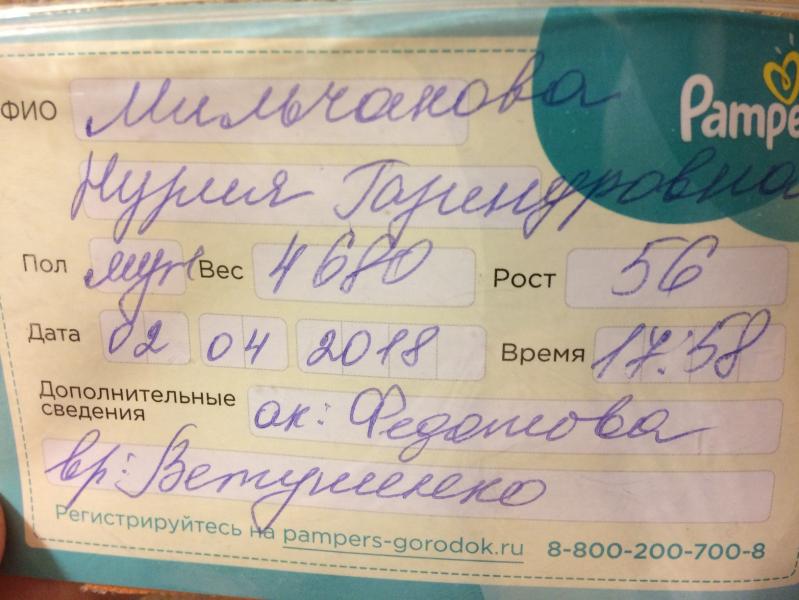 Pampe
ФИО Мильчакова
Нурия
Пол муж Вес 4680 Рост 56
Дата 02 04 2018 Время 17:58
Дополнительные сведения ак: Федотова
вр:
Регистрируйтесь на pampers-gorodok.ru 8-800-200-700-8